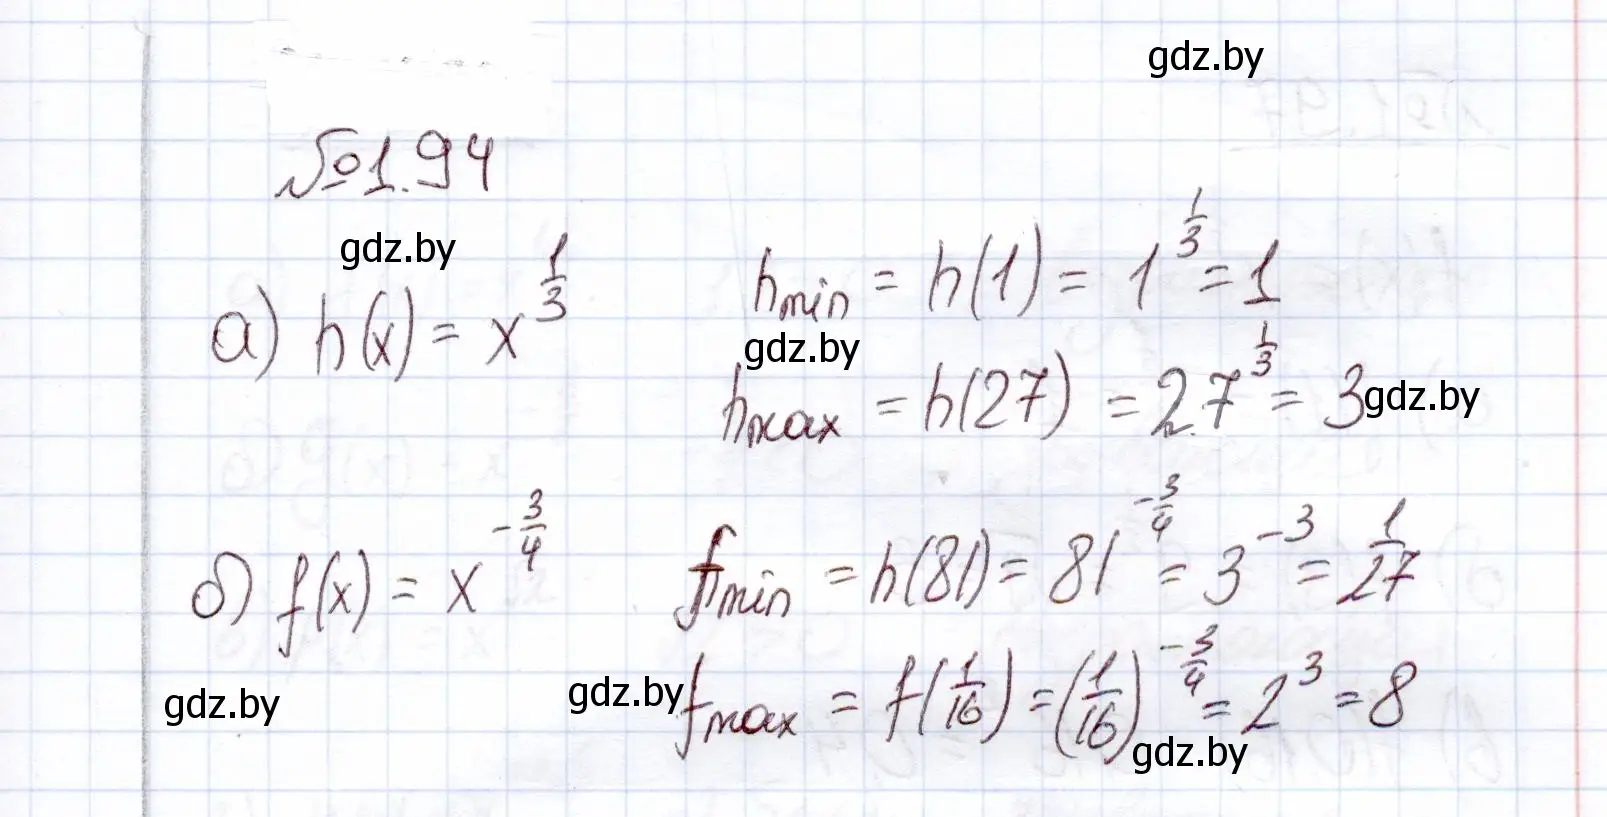 gdz.by
№1.94
gdz.by
а) h(x) = x^{1/3}
h_{min} = h(1) = 1^{1/3} = 1
gdz.by
h_{max} = h(27) = 27^{1/3} = 3
gdz.by
б) f(x) = x^{-3/4}
f_{min} = h(81) = 81^{-3/4} = 3^{-3} = 1/27
gdz.by
gdz.by
f_{max} = f(1/16) = (1/16)^{-3/4} = 2^3 = 8
gdz.by